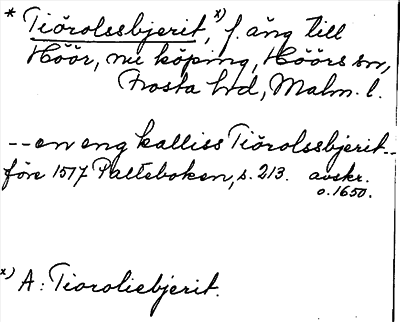 * Tiörolssbjerit, x) f. äng till
Höör, nu köping, Höörs sn,
Frosta hd, Malm. l.
-- en eng kalliss Tiörolssbjerit --
före 1517 Palteboken, s. 213. avskr.
o. 1650.
x) A: Tioroliebjerit.